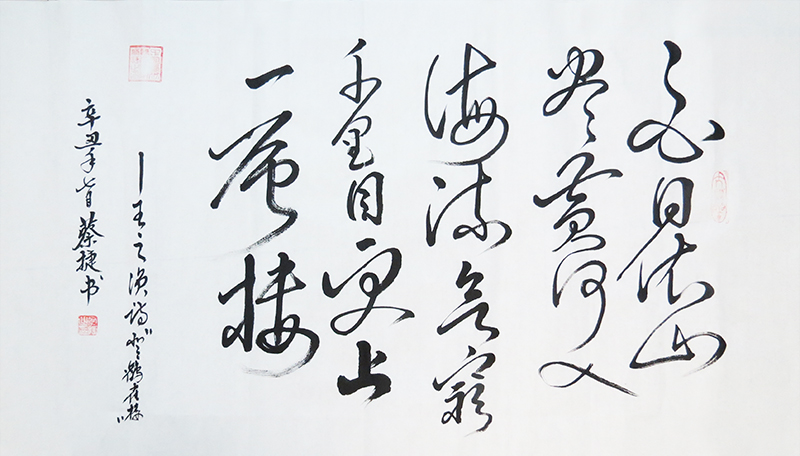 白日依山
尽黄河入
海流欲穷
千里目更上
一层楼
—王之涣诗《登鹳雀楼》
辛丑年七月蔡捷书